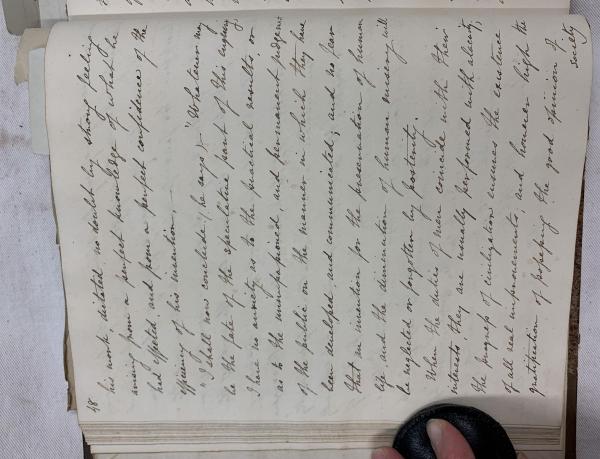 48
his work dictated no doubt by strong feeling
arising from a perfect knowledge of what he
had effected and from a perfect confidence of the
efficacy of his invention,
"I shall now conclude (he says) - "Whatever may
be the fate of the speculative part of this inquiry
I have no anxiety as to the practical results, or
as to the unimpassioned, and permanent judgment
of the public on the manner in which they have
been developed and communicated; and no fear
that an invention for the preservation of human
life and the diminution of human misery will
be neglected or forgotten by posterity.
When the duties of men coincide with their
interests, they are usually performed with alacrity,
the progress of civilization ensures the existence
of all real improvements, and however high the
gratification of possessing the good opinion of
society